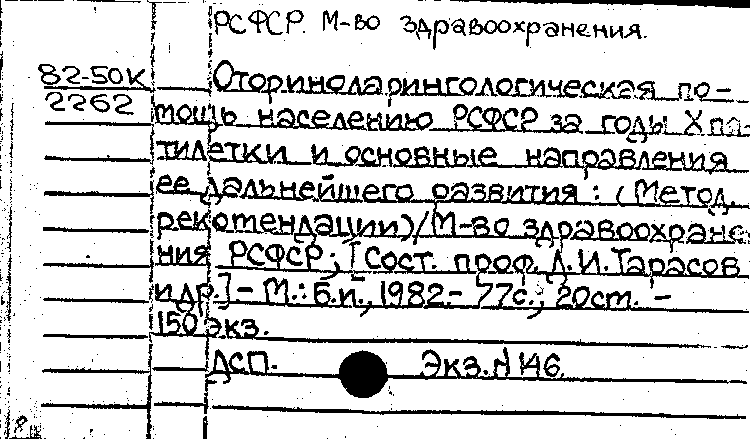 РСФСР. М-во здравоохранения.
82-50К Оториноларингологическая по-
2262 мощь населению РСФСР за годы X пя-
тилетки и основные направления
ее дальнейшего развития: (Метод.
рекомендации)/М-во здравоохране-
ния РСФСР; [Сост. проф. Д.И.Тарасов
и др.] - М.: Б.и., 1982.- 77с.; 20см. -
150 экз.
ДСП. Экз.N 146.